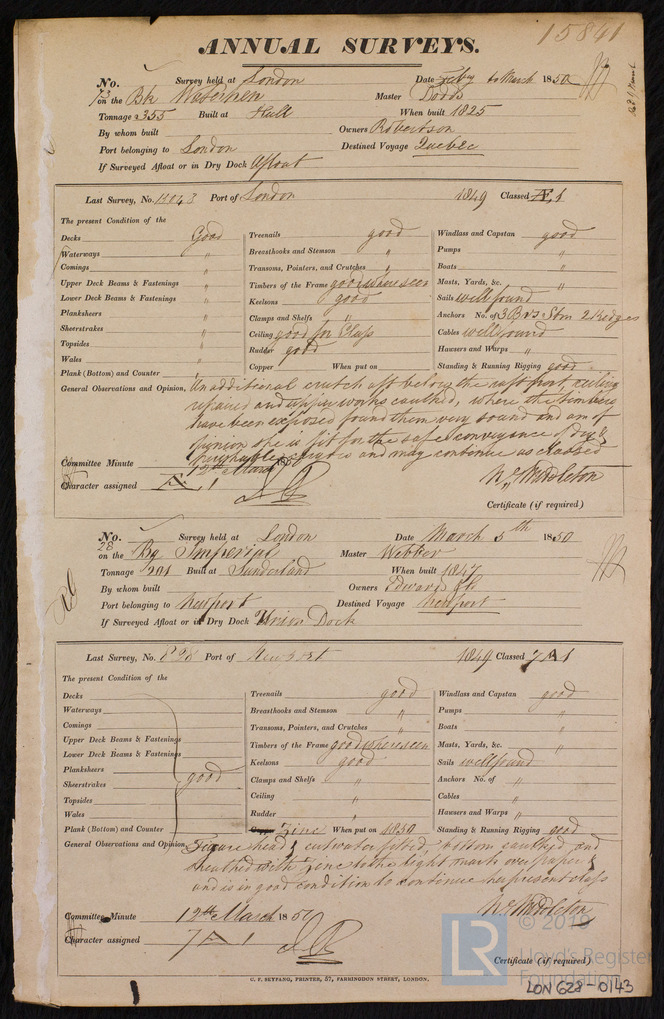 15841
ANNUAL SURVEYS.
No. 73 Survey held at London Date Feby to March 1850
on the Bk Master Dodds
Tonnage 355 Built at Hull When built 1825
By whom built Owners Robertson
Port belonging to London Destined Voyage Quebec
If Surveyed Afloat or in Dry Dock Afloat
Last Survey, No. Port of London 1849 Classed Æ 1
The present Condition of the
Decks Good Treenails good Windlass and Capstan good
Waterways " Breasthooks and Stemson " Pumps "
Comings " Transoms, Pointers, and Crutches " Boats "
Upper Deck Beams & Fastenings " Timbers of the Frame good where seen Masts, Yards, &c. "
Lower Deck Beams & Fastenings " Keelsons good Sails well found
Planksheers " Clamps and Shelfs " Anchors No. of 3 Brs Stm 2 Kedges
Sheerstrakes " Ceiling good for Class Cables well found
Topsides " Rudder good Hawsers and Warps "
Wales " Copper When put on Standing & Running Rigging good
Plank (Bottom) and Counter "
General Observations and Opinion, An additional crutch aft below the raft port, ceiling
repaired and upper works caulked, where the timbers
have been exposed found them very sound and am of
opinion she is fit for the safe conveyance of dry &
perishable cargoes and may continue as classed
Committee Minute 12th March 1850
Character assigned Æ 1 Wm Middleton
Certificate (if required)
No. 28 Survey held at London Date March 5th 1850
on the Bg Imperial Master Webber
Tonnage 201 Built at Sunderland When built 1847
By whom built Owners Edwards & Co
Port belonging to Newport Destined Voyage Newport
If Surveyed Afloat or in Dry Dock Union Dock
Last Survey, No. Port of Newport 1849 Classed 7 A 1
The present Condition of the
Decks Treenails good Windlass and Capstan good
Waterways Breasthooks and Stemson " Pumps "
Comings Transoms, Pointers, and Crutches " Boats "
Upper Deck Beams & Fastenings Timbers of the Frame good where seen Masts, Yards, &c. "
Lower Deck Beams & Fastenings Keelsons good Sails well found
Planksheers Clamps and Shelfs " Anchors No. of "
Sheerstrakes good Ceiling " Cables "
Topsides Rudder " Hawsers and Warps "
Wales Copper Zinc When put on 1850 Standing & Running Rigging good
Plank (Bottom) and Counter
General Observations and Opinion, Figure head & cutwater fitted, bottom caulked and
sheathed with Zinc to the light mark over paper &
and is in good condition to continue her present class
Wm Middleton
Committee Minute 12th March 1850
Character assigned 7 A 1
Certificate (if required)
C. F. SEYFANG, PRINTER, 57, FARRINGDON STREET, LONDON.
LR
© 2019
Lloyd's Register
Foundation
LON 628-0143